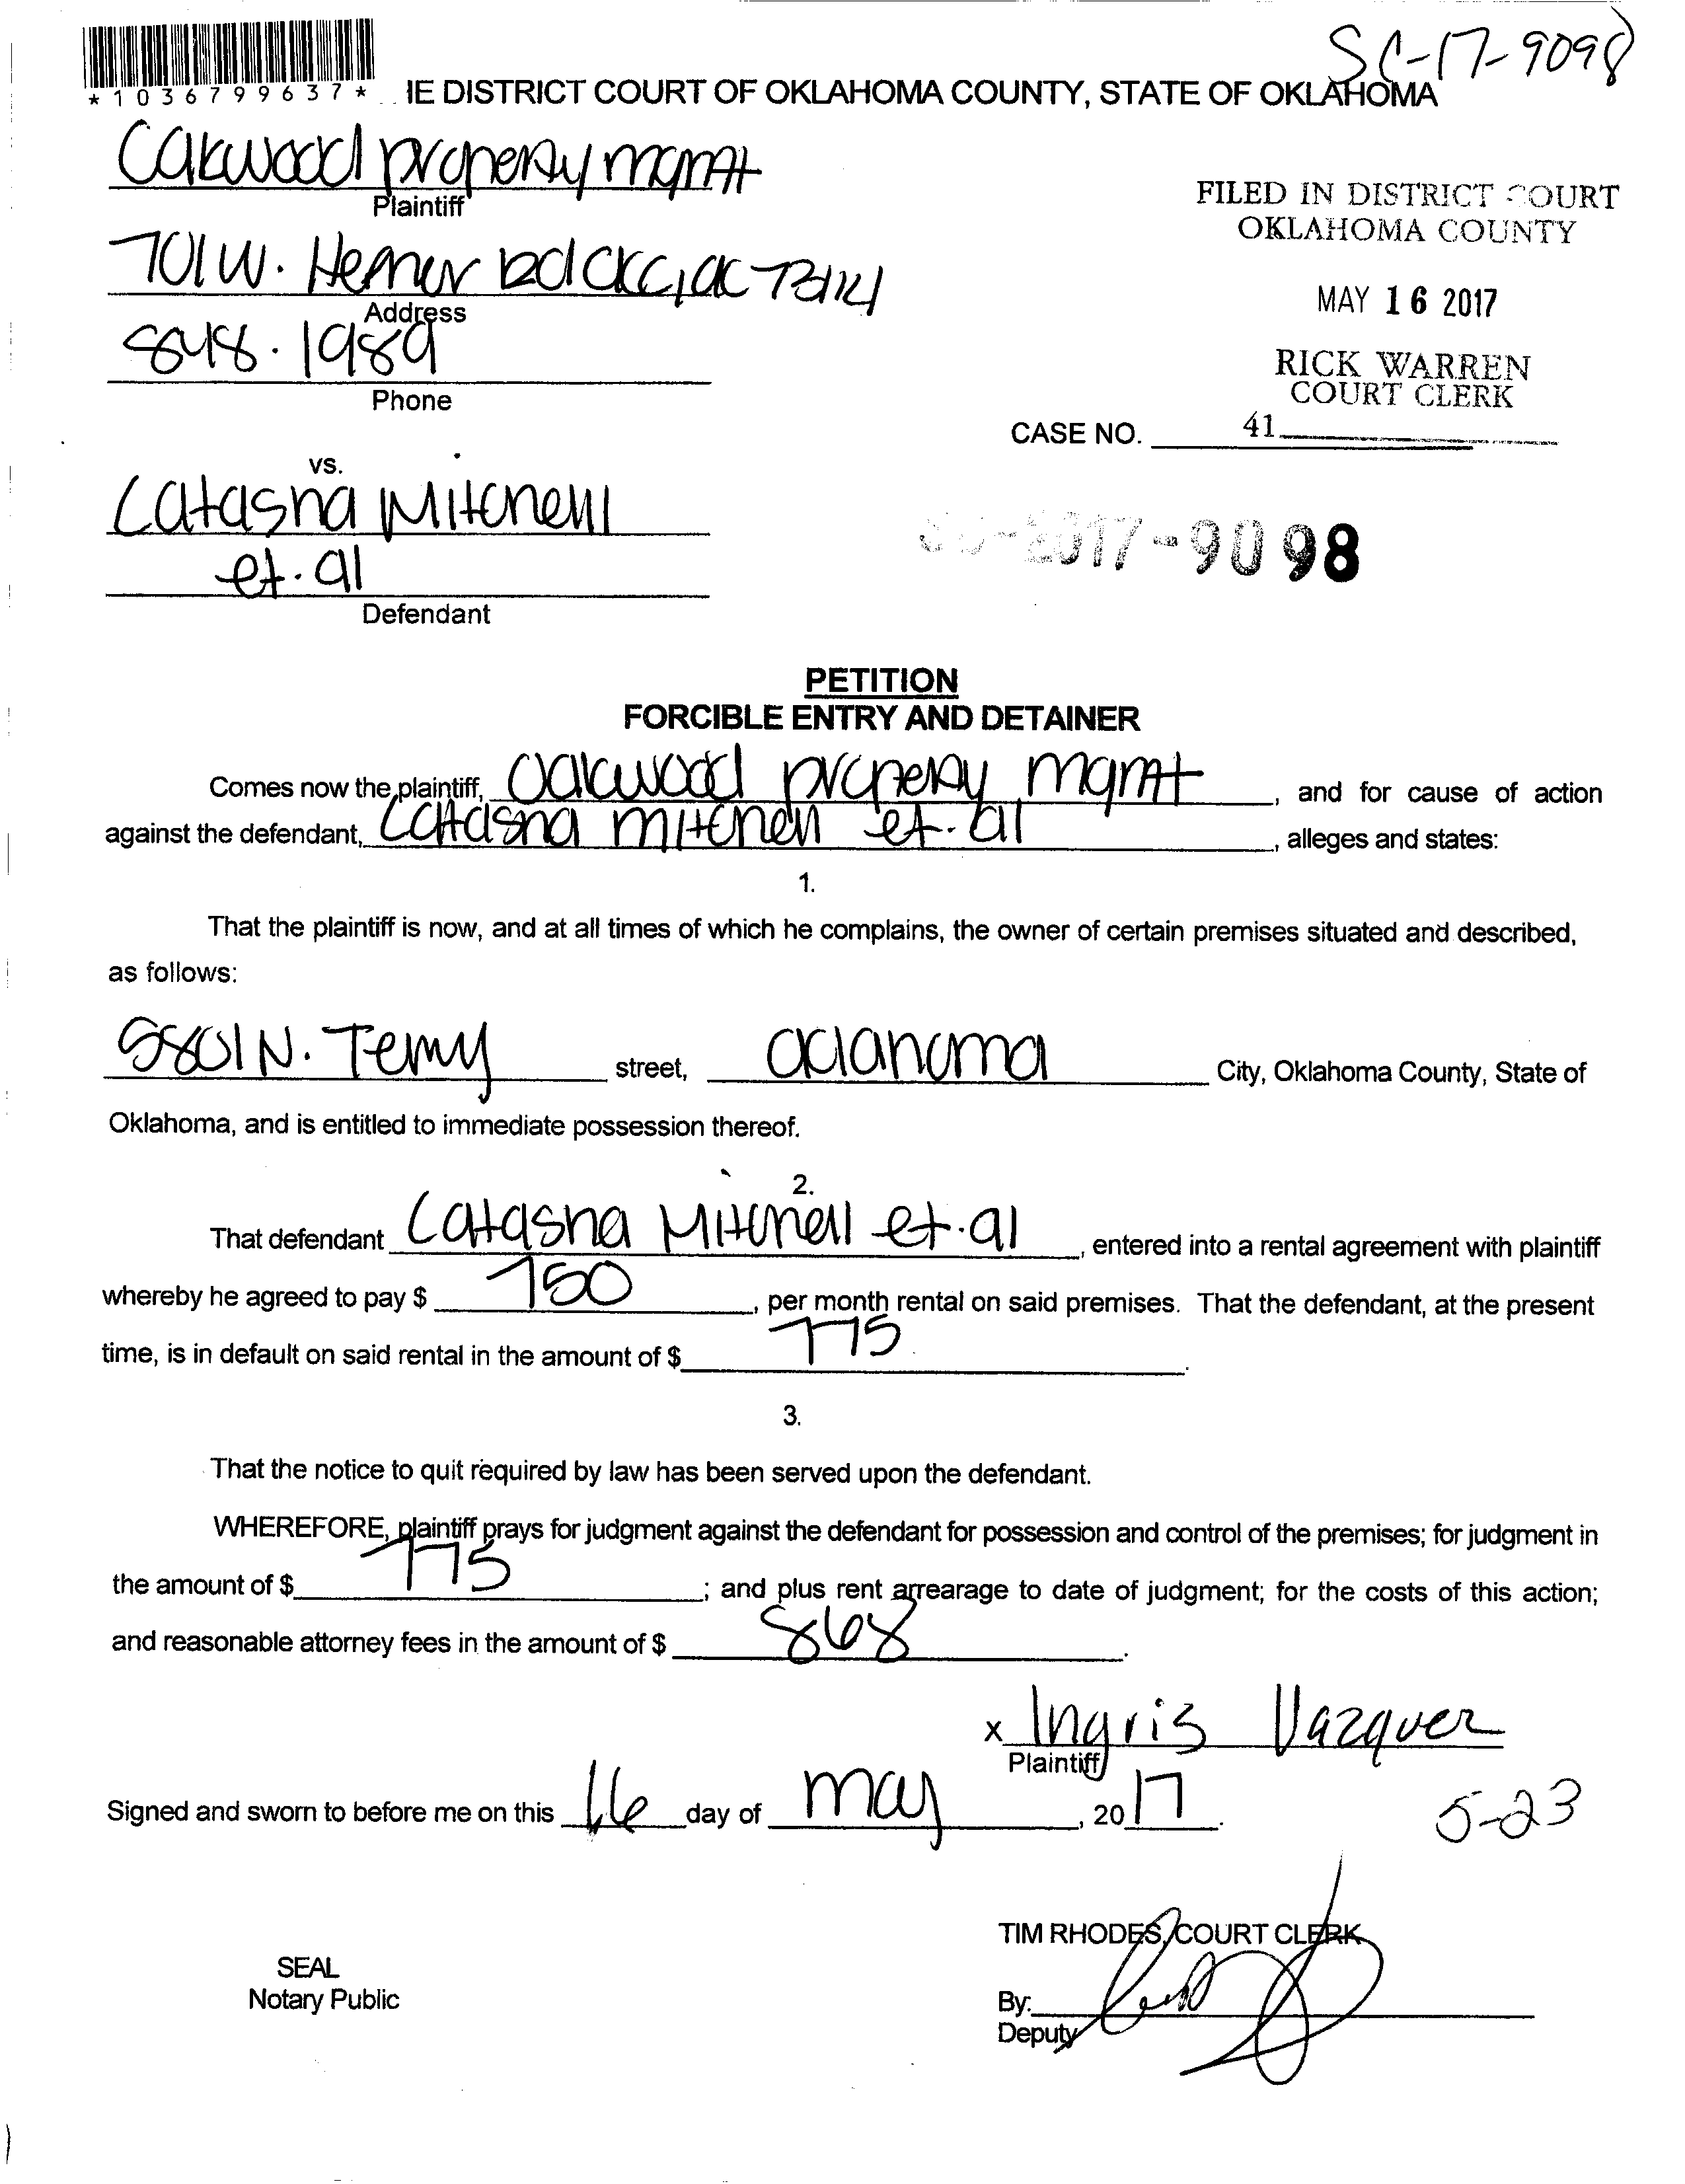 SC-17-9098
*1036799637* IE DISTRICT COURT OF OKLAHOMA COUNTY, STATE OF OKLAHOMA
Oakwood property mgmt
Plaintiff
701 W. Hefner Rd OKC, OK 73114
Address
848.1989
Phone
FILED IN DISTRICT COURT
OKLAHOMA COUNTY
MAY 16 2017
RICK WARREN
COURT CLERK
CASE NO. 41
vs.
Latasha Mitchell
et. al
Defendant
SC-2017-9098
PETITION
FORCIBLE ENTRY AND DETAINER
Comes now the plaintiff, Oakwood property mgmt, and for cause of action
against the defendant, Latasha Mitchell et. al, alleges and states:
1.
That the plaintiff is now, and at all times of which he complains, the owner of certain premises situated and described,
as follows:
5801 N. Terry street, Oklahoma City, Oklahoma County, State of
Oklahoma, and is entitled to immediate possession thereof.
2.
That defendant Latasha Mitchell et. al, entered into a rental agreement with plaintiff
whereby he agreed to pay $ 750, per month rental on said premises. That the defendant, at the present
time, is in default on said rental in the amount of $ 775.
3.
That the notice to quit required by law has been served upon the defendant.
WHEREFORE, plaintiff prays for judgment against the defendant for possession and control of the premises; for judgment in
the amount of $ 775; and plus rent arrearage to date of judgment; for the costs of this action;
and reasonable attorney fees in the amount of $ 868.
x Ingris Vazquez
Plaintiff
Signed and sworn to before me on this 16 day of may, 2017.
5-23
TIM RHODES, COURT CLERK
SEAL
Notary Public
By:
Deputy